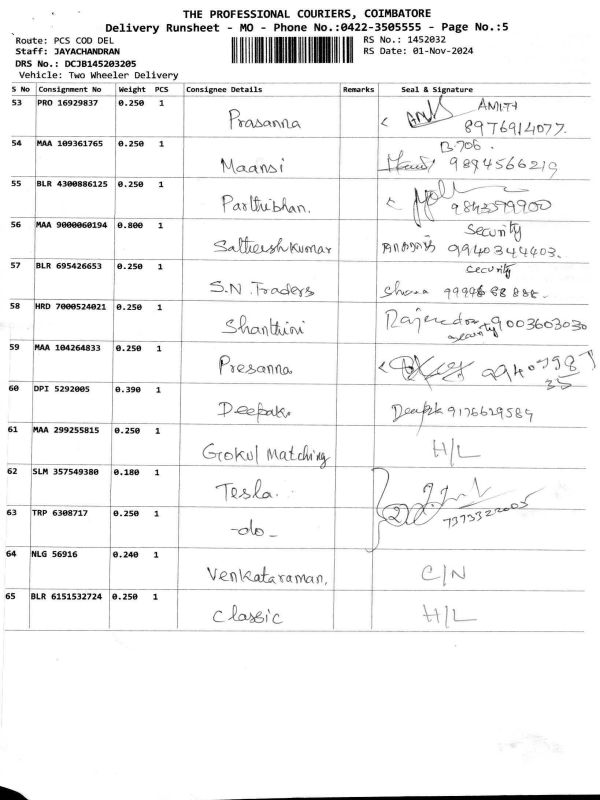 THE PROFESSIONAL COURIERS, COIMBATORE
Delivery Runsheet - MO - Phone No.:0422-3505555 - Page No.:5
Route: PCS COD DEL RS No.: 1452032
Staff: JAYACHANDRAN RS Date: 01-Nov-2024
DRS No.: DCJB145203205
Vehicle: Two Wheeler Delivery
S No Consignment No Weight PCS Consignee Details Remarks Seal & Signature
53 PRO 16929837 0.250 1
Prasanna AMITH
8976914077.
54 MAA 109361765 0.250 1 B.706.
Maansi 9894566219
55 BLR 4300886125 0.250 1
Parthibhan. 9843579900
56 MAA 9000060194 0.800 1 Security
Satheeshkumar 9940344403.
57 BLR 695426653 0.250 1 security
S.N. Traders
58 HRD 7000524021 0.250 1
Shanthini 9003603030
security
59 MAA 104264833 0.250 1
Presanna
35
60 DPI 5292005 0.390 1
Deepak. Deepak 9176629589
61 MAA 299255815 0.250 1
Gokul Matching H/L
62 SLM 357549380 0.180 1
Tesla. 2
7373322005
63 TRP 6308717 0.250 1
-do-
64 NLG 56916 0.240 1
Venkataraman. C/N
65 BLR 6151532724 0.250 1
Classic H/L